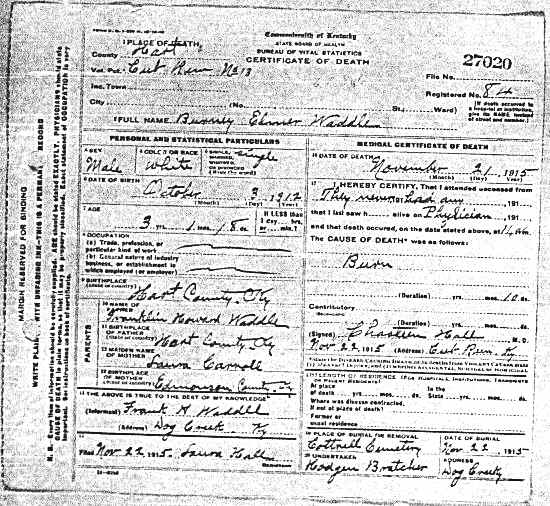 Commonwealth of Kentucky
STATE BOARD OF HEALTH
BUREAU OF VITAL STATISTICS
CERTIFICATE OF DEATH
27020
1 PLACE OF DEATH,
County Hart
Vot. Pct. Cut Run No 13
File No.
Registered No. 84
Inc. Town
City (No. St., Ward)
(If death occurred in a hospital or institution, give its NAME instead of street and number.)
2 FULL NAME Elmer Waddle
PERSONAL AND STATISTICAL PARTICULARS
3 SEX Male
4 COLOR OR RACE White
5 SINGLE, MARRIED, (Write the word) Single
6 DATE OF BIRTH
October 3 1912
(Month) (Day) (Year)
7 AGE
3 yrs. 1 mos. 18 ds.
If LESS than
1 day, hrs.
8 OCCUPATION
(a) Trade, profession, or
particular kind of work
(b) General nature of industry
business, or establishment in
which employed (or employer)
9 BIRTHPLACE
(State or country) Hart County, Ky
PARENTS
10 NAME OF FATHER Franklin Howard Waddle
11 BIRTHPLACE
OF FATHER
(State or country) Hart County Ky
12 MAIDEN NAME
OF MOTHER Laura Carroll
13 BIRTHPLACE
OF MOTHER
(State or country) Edmonson County, Ky
14 THE ABOVE IS TRUE TO THE BEST OF MY KNOWLEDGE
(Informant) Frank H Waddle
(Address) Dog Creek Ky
15
Filed Nov 22 1915 Laura Hall
MEDICAL CERTIFICATE OF DEATH
16 DATE OF DEATH
November 21 1915
(Month) (Day) (Year)
17 I HEREBY CERTIFY, That I attended deceased from
They never had any 191
that I last saw h alive on Physician 191
and that death occured, on the date stated above, at
The CAUSE OF DEATH* was as follows:
Burn
(Duration) yrs. mos. 10 ds.
Contributory
(Duration) yrs. mos. ds.
(Signed) Hall M. D.
Nov 22 1915 (Address) Cut Run, Ky
LENGTH OF RESIDENCE (FOR HOSPITALS, INSTITUTIONS, TRANSIENTS
OR RECENT RESIDENTS)
At place In the
of death yrs. mos. ds. State yrs. mos. ds.
Where was disease contracted,
if not at place of death?
Former or
usual residence
19 PLACE OF BURIAL OR REMOVAL
Cottrell Cemetery
DATE OF BURIAL
Nov 22, 1915
20 UNDERTAKER
Hodgen Bratcher
ADDRESS
Dog Creek
MARGIN RESERVED FOR BINDING